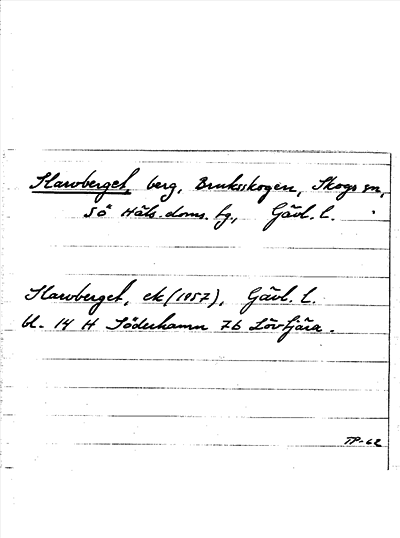 Harvberget, berg, Bruksskogen, Skogs sn,
SÖ Häls. doms. fg., Gävl. l.
Harvberget, ek (1957), Gävl. l.
bl. 14 H Söderhamn 7b Lövtjära.
TP-62